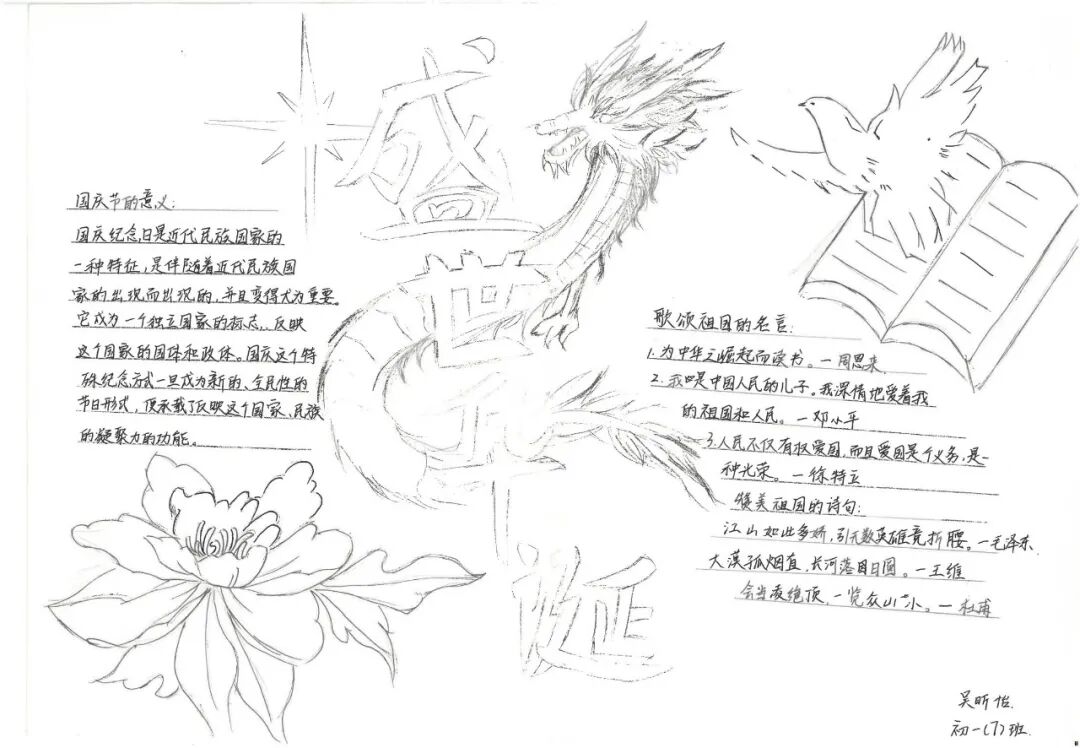 盛世华诞
国庆节的意义:
国庆纪念日是近代民族国家的
一种特征,是伴随着近代民族国
家的出现而出现的,并且变得尤为重要。
它成为一个独立国家的标志,反映
这个国家的国体和政体。国庆这个特
殊纪念方式一旦成为新的、全民性的
节日形式,便承载了反映这个国家、民族
的凝聚力的功能。
歌颂祖国的名言:
1.为中华之崛起而读书。—周恩来
2.我是中国人民的儿子。我深情地爱着我
的祖国和人民。—邓小平
3.人民不仅有权爱国,而且爱国是个义务,是一
种光荣。—徐特立
赞美祖国的诗句:
江山如此多娇,引无数英雄竞折腰。—毛泽东
大漠孤烟直,长河落日圆。—王维
会当凌绝顶,一览众山小。—杜甫
吴昕怡
初一(7)班